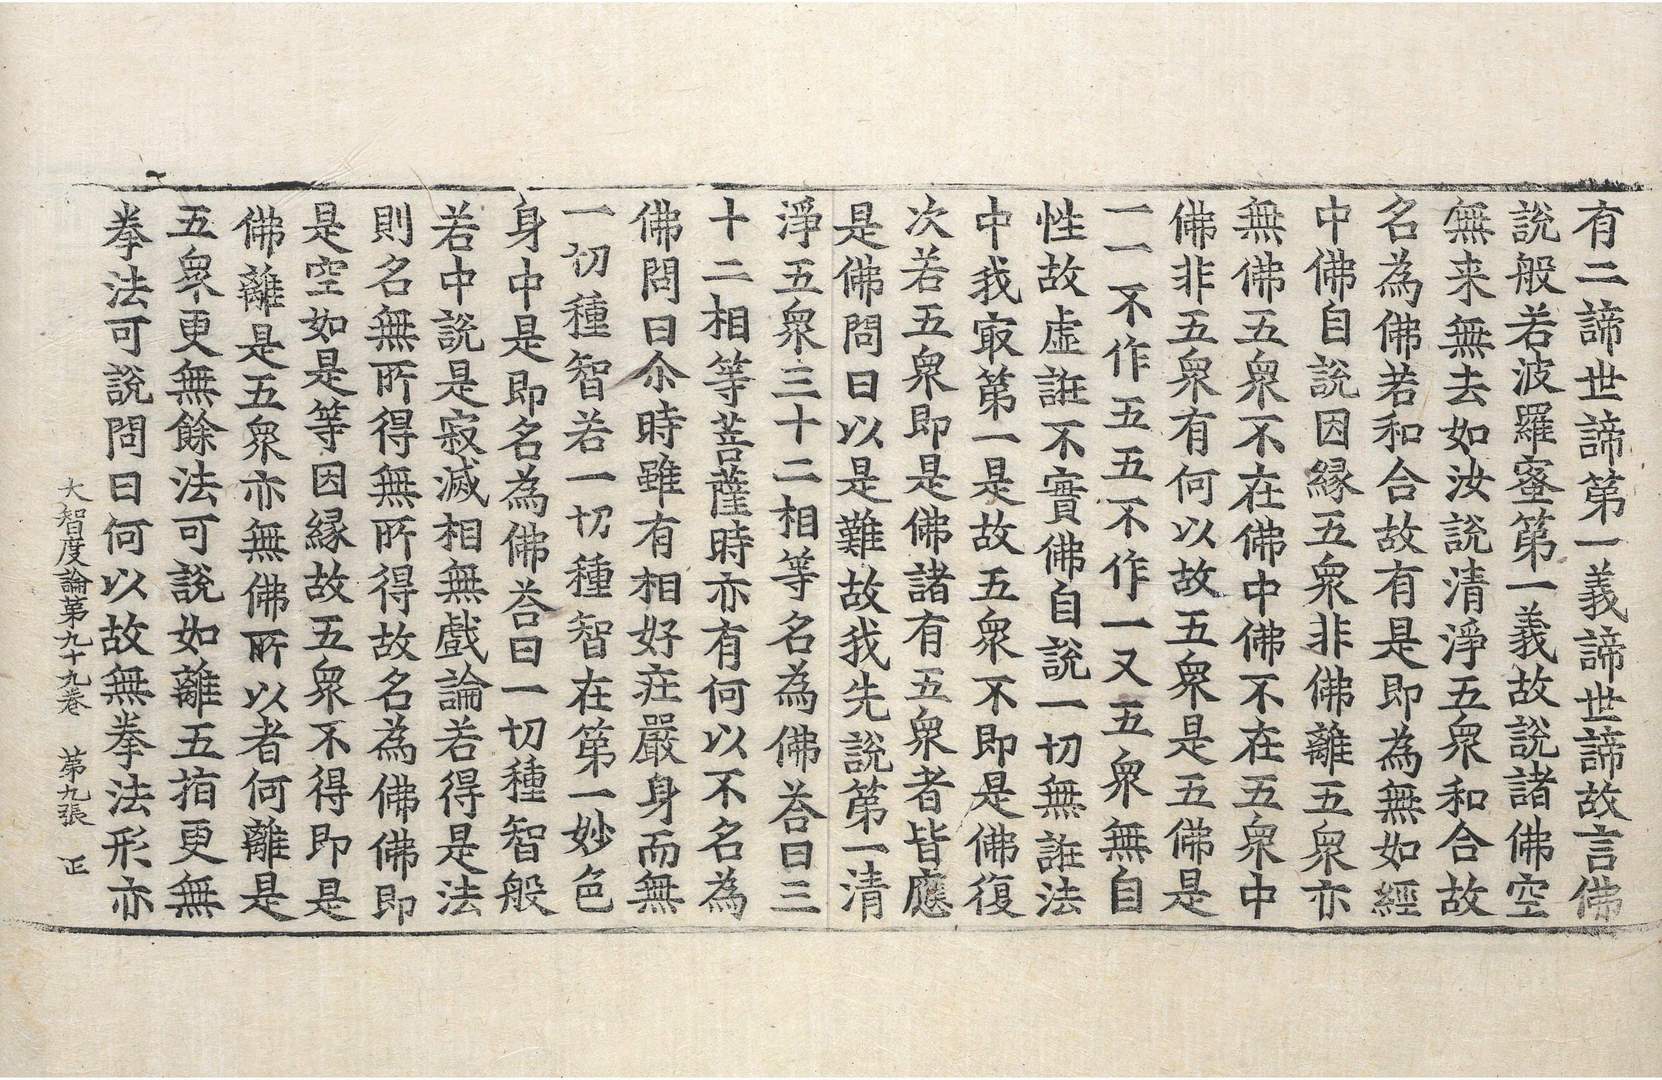 有二諦世諦第一義諦世諦故言佛
說般若波羅蜜第一義故說諸佛空
無来無去如汝說清淨五衆和合故
名為佛若和合故有是即為無如經
中佛自說因縁五衆非佛離五衆亦
無佛五衆不在佛中佛不在五衆中
佛非五衆有何以故五衆是五佛是
一一不作五五不作一又五衆無自
性故虛誑不實佛自說一切無誑法
中我㝡第一是故五衆不即是佛復
次若五衆即是佛諸有五衆者皆應
是佛問曰以是難故我先說第一清
淨五衆三十二相等名為佛荅曰三
十二相等菩薩時亦有何以不名為
佛問曰尒時雖有相好莊嚴身而無
一切種智若一切種智在第一妙色
身中是即名為佛荅曰一切種智般
若中說是寂滅相無戲論若得是法
則名無所得無所得故名為佛佛即
是空如是等因縁故五衆不得即是
佛離是五衆亦無佛所以者何離是
五衆更無餘法可說如離五指更無
拳法可說問曰何以故無拳法形亦
大智度論第九十九卷　第九張　正